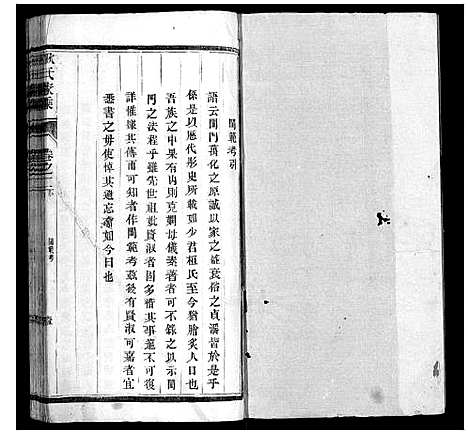 閫範考引
語云閨門萬化之原誠以家之盛衰俗之貞淫皆於是乎
係是以歷代彤史所載如少君桓氏至今猶膾炙人口也
吾族之中果有內則克嫻母儀素著者可不錄之以示閨
門之法程乎雖先世祖妣賢淑者固多惜其事蹟不可復
詳惟據其傳而可知者作閫範考蓋後有賢淑可嘉者宜
悉書之毋使悼其遺忘猶如今日也
氏家乘
卷之二
閫範考